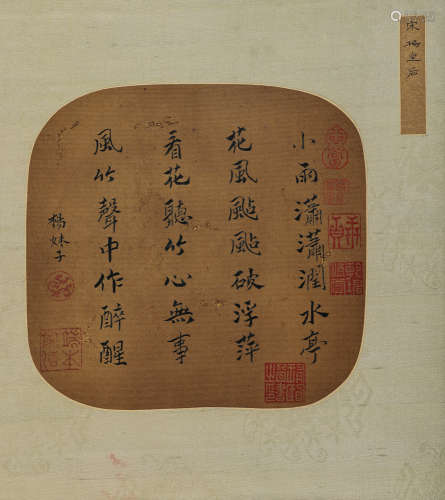 宋楊皇后
小雨瀟瀟潤水亭
花風颭颭破浮萍
看花聽竹心無事
風竹聲中作醉醒
楊妹子